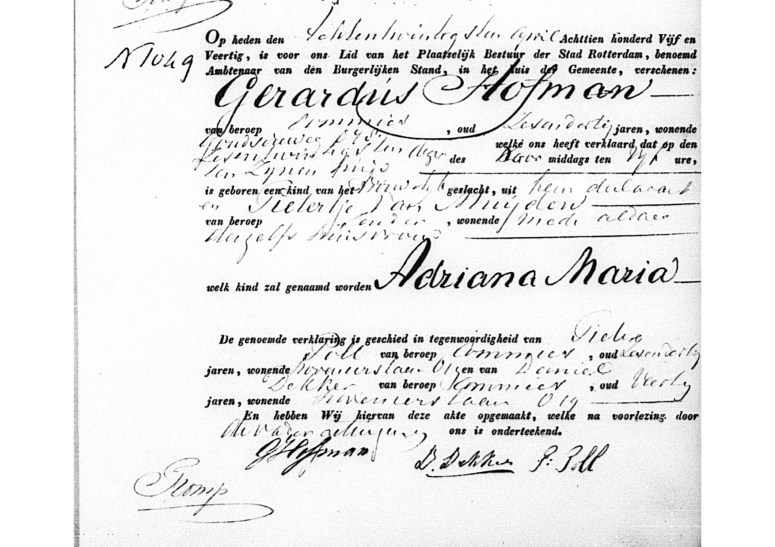 Op heden den Achtentwintigsten April Achttien honderd Vijf en
N 1049
Veertig, is voor ons Lid van het Plaatselijk Bestuur der Stad Rotterdam, benoemd
Ambtenaar van den Burgerlijken Stand, in het huis der Gemeente, verschenen:
Gerardus Hofman
van beroep Commies, oud Zesendertig jaren, wonende
welke ons heeft verklaard dat op den
Zesentwintigsten dezer des Voor middags ten Vijf ure,
ten zijnen huize
is geboren een kind van het Vrouwelijk geslacht, uit hem declarant
en Pietertje van Muijden
van beroep Zonder, wonende mede aldaar
deszelfs huisvrouw
welk kind zal genaamd worden Adriana Maria
De genoemde verklaring is geschied in tegenwoordigheid van Pieter
Poll van beroep Commies, oud Zesendertig
jaren, wonende en van Daniel
Dekker van beroep Commies, oud Veertig
jaren, wonende
En hebben Wij hiervan deze akte opgemaakt, welke na voorlezing door
de vader getuigen ons is onderteekend.
G Hofman
D. Dekker P. Poll
Tromp